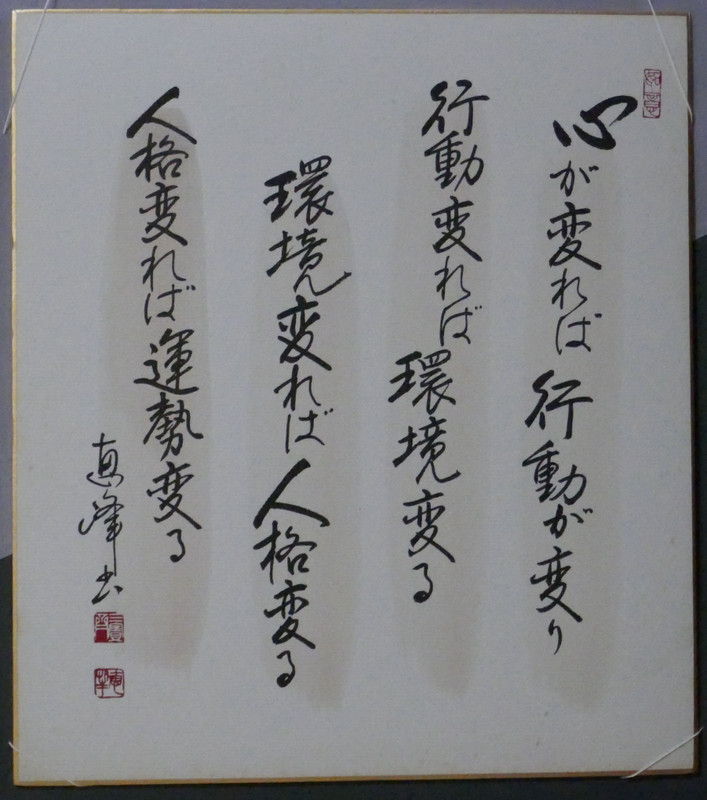 心が変れば行動が変り
行動変れば環境変る
環境変れば人格変る
人格変れば運勢変る
直峰書